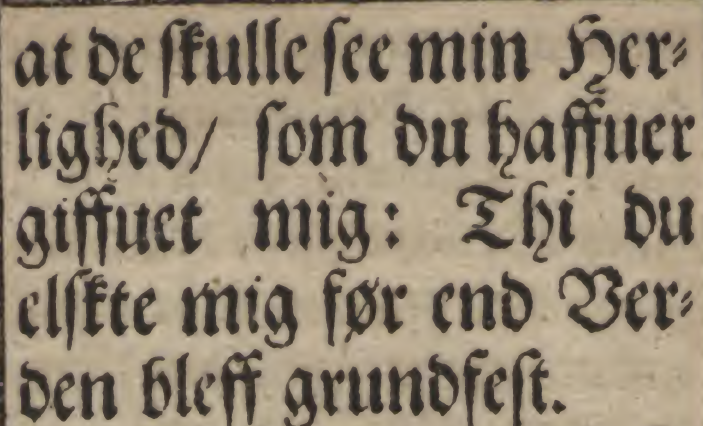 at de skulle see min Her⸗
lighed/ som du haffuer
giffuet mig: Thi du
elskte mig før end Ver⸗
den bleff grundfest.